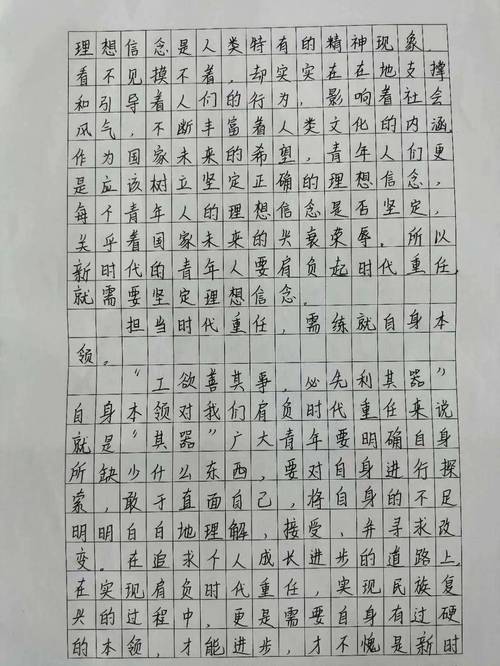 理想信念是人类特有的精神现象.
看不见摸不着，却实实在在地支撑
和引导着人们的行为，影响着社会
风气，不断丰富着人类文化的内涵.
作为国家未来的希望，青年人们更
是应该树立坚定正确的理想信念，
每个青年人的理想信念是否坚定，
关乎着国家未来的兴衰荣辱。所以
新时代的青年人要肩负起时代重任，
就需要坚定理想信念。
担当时代重任，需练就自身本
领。
“工欲善其事，必先利其器”
自身本领对我们肩负时代重任来说
就是“其器”广大青年要明确自身
所缺少什么东西，要对自身进行探
索，敢于直面自己，将自身的不足
明明白白地理解，接受，并寻求改
变。在追求个人成长进步的道路上.
在实现肩负时代重任，实现民族复
兴的过程中，更是需要自身有过硬
的本领，才能进步，才不愧是新时